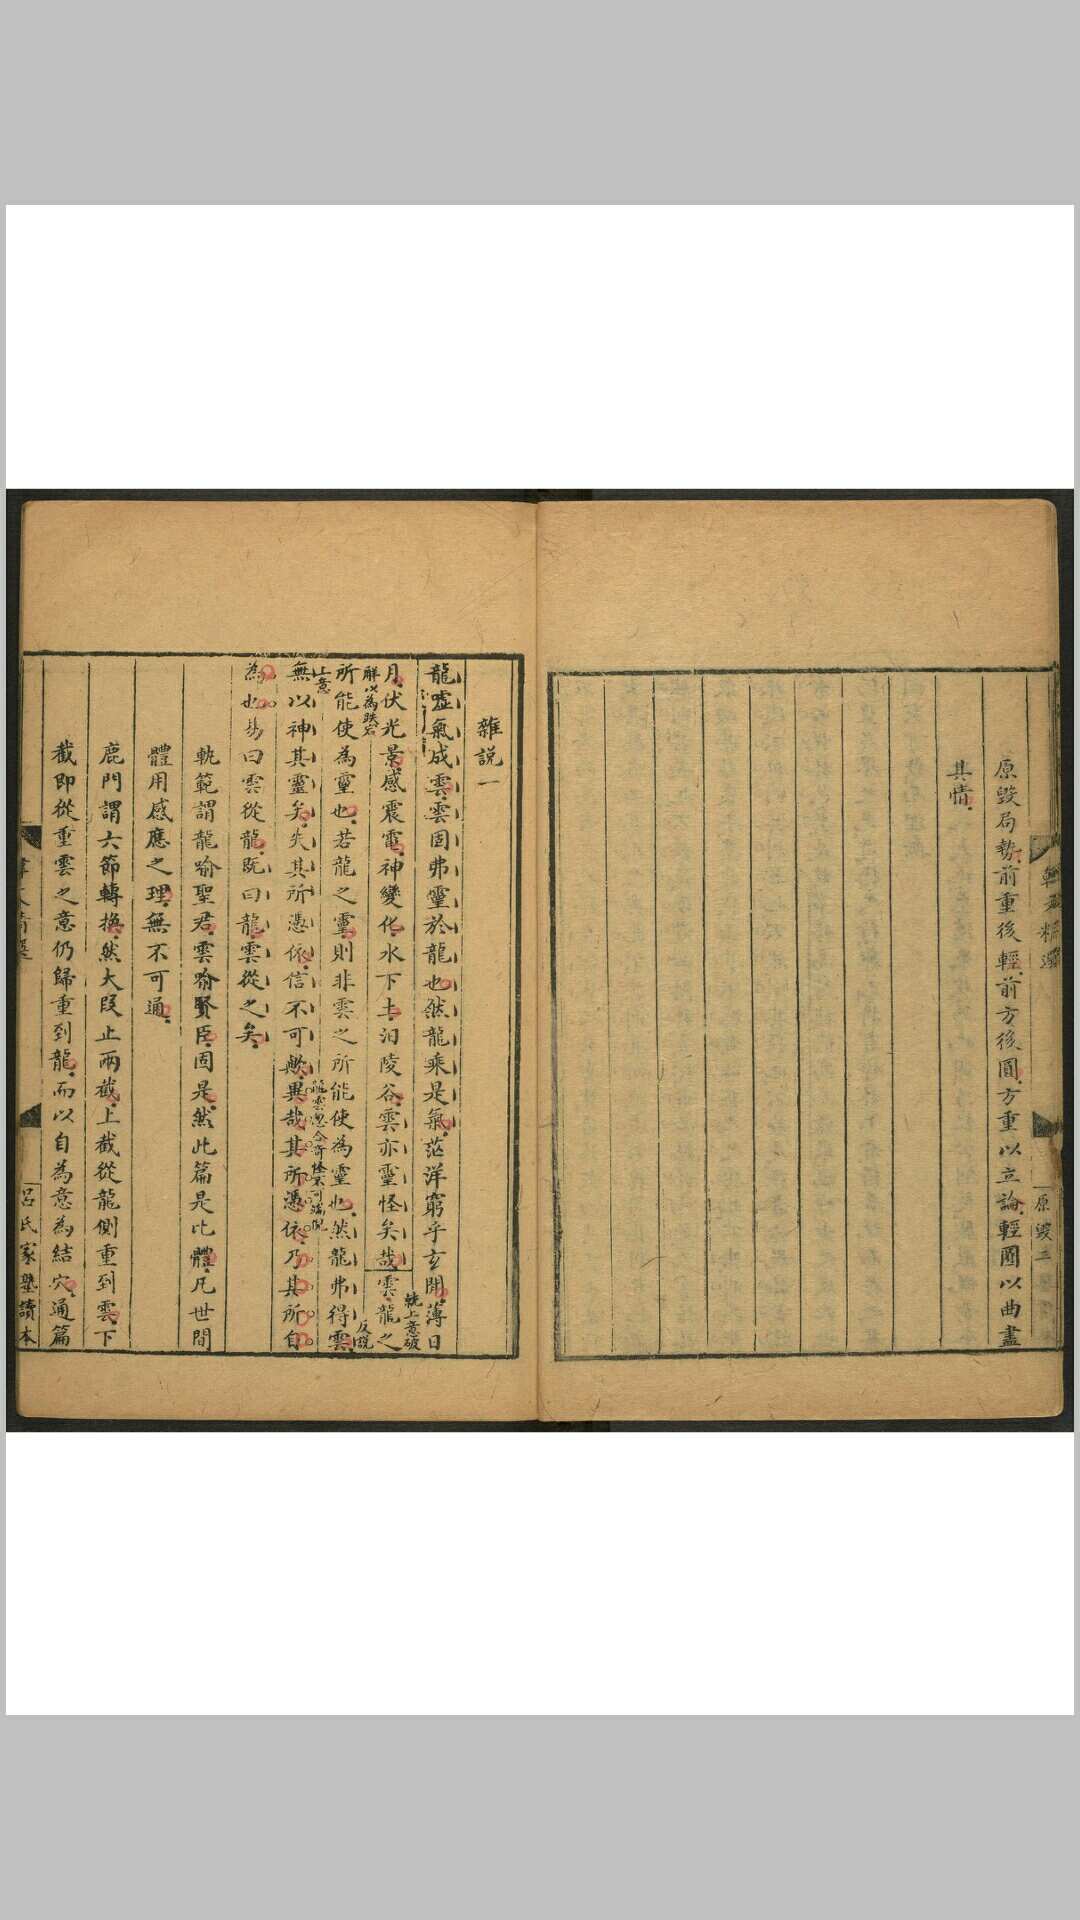 原毀局勢前重後輕前方後圓方重以立論輕圓以曲盡
其情
原毀三
雜說一
龍噓氣成雲雲固弗靈於龍也然龍乘是氣茫洋窮乎玄間薄日
月伏光景感震電神變化水下土汩陵谷雲亦靈怪矣哉雲龍之
所能使為靈也若龍之靈則非雲之所能使為靈也然龍弗得雲
無以神其靈矣失其所憑依信不可歟異哉其所憑依乃其所自
為也易曰雲從龍既曰龍雲從之矣
軌範謂龍喻聖君雲喻賢臣固是然此篇是比體凡世間
體用感應之理無不可通
鹿門謂六節轉換然大段止兩截上截從龍側重到雲下
截即從重雲之意仍歸重到龍而以自為意為結穴通篇
呂氏家塾讀本
就上意破
反說
上意